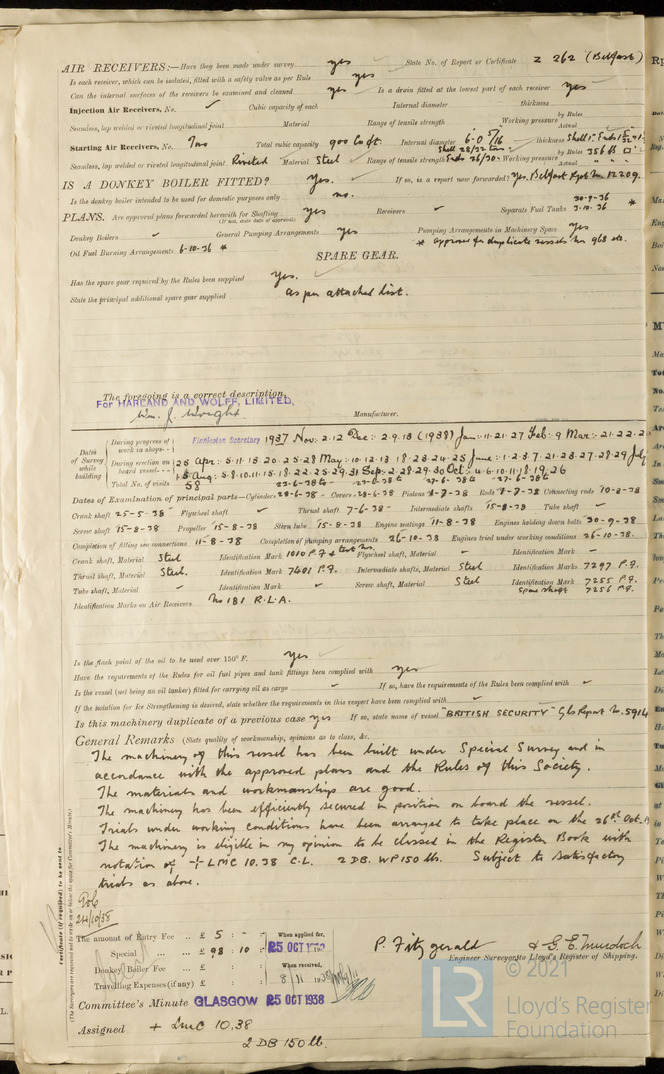 AIR RECEIVERS:—Have they been made under survey yes State No. of Report or Certificate Z 262 (Belfast)
Is each receiver, which can be isolated, fitted with a safety valve as per Rule yes
Can the internal surfaces of the receivers be examined and cleaned yes Is a drain fitted at the lowest part of each receiver yes
Injection Air Receivers, No. ✓ Cubic capacity of each Internal diameter thickness
Seamless, lap welded or riveted longitudinal joint Material Range of tensile strength Working pressure by Rules Actual
Starting Air Receivers, No. Two Total cubic capacity 900 Co ft. Internal diameter 6'-0 5/16 thickness
Seamless, lap welded or riveted longitudinal joint Riveted Material Steel Range of tensile strength Shell 28/32 tons Ends 26/30 Working pressure by Rules 356 lb □" Actual
IS A DONKEY BOILER FITTED? Yes. If so, is a report now forwarded? Yes. Belfast Rpt No 12209.
Is the donkey boiler intended to be used for domestic purposes only no.
PLANS. Are approved plans forwarded herewith for Shafting yes Receivers ✓ Separate Fuel Tanks 30-9-36 3-10-36 *
(If not, state date of approval)
Donkey Boilers ✓ General Pumping Arrangements yes Pumping Arrangements in Machinery Space yes
Oil Fuel Burning Arrangements 6-10-36 * * approved for duplicate vessels Nos 968 etc.
SPARE GEAR.
Has the spare gear required by the Rules been supplied Yes.
State the principal additional spare gear supplied as per attached list.
The foregoing is a correct description,
For HARLAND AND WOLFF, LIMITED,
Wm. J. Wright Manufacturer.
Secretary
Dates of Survey while building
During progress of work in shops - - 1937 Nov: 2.12 Dec: 2.9.13 (1938) Jan: 11.21.27 Feb: 9 Mar: 21.22.2
During erection on board vessel - - - 25 Apr: 5.11.13.20.25.28 May: 10.12.13.18.23.24.25 June: 1.2.3.7.21.23.27.28.29 July
Aug: 5.8.10.11.15.18.22.25.29.31 Sep: 2.28.29.30 Oct: 4.6.10.11.18.19.26
Total No. of visits 58
Dates of Examination of principal parts—Cylinders 28-6-38 Covers 28-6-38 Pistons 1-7-38 Rods 7-7-38 Connecting rods 10-8-38
Crank shaft 25-5-38 Flywheel shaft ✓ Thrust shaft 7-6-38 Intermediate shafts 15-8-38 Tube shaft ✓
Screw shaft 15-8-38 Propeller 15-8-38 Stern tube 15-8-38 Engine seatings 11-8-38 Engines holding down bolts 30-9-38
Completion of fitting sea connections 11-8-38 Completion of pumping arrangements 26-10-38 Engines tried under working conditions 26-10-38.
Crank shaft, Material Steel Identification Mark 1010 P.F. & test Nos. Flywheel shaft, Material Identification Mark
Thrust shaft, Material Steel. Identification Mark 7401 P.F. Intermediate shafts, Material Steel Identification Marks 7297 P.F.
Tube shaft, Material ✓ Identification Mark ✓ Screw shaft, Material Steel Identification Mark 7255 P.F.
Spare shaft 7256 P.F.
Identification Marks on Air Receivers No 181 R.L.A.
Is the flash point of the oil to be used over 150° F. yes
Have the requirements of the Rules for oil fuel pipes and tank fittings been complied with yes
Is the vessel (not being an oil tanker) fitted for carrying oil as cargo ✓ If so, have the requirements of the Rules been complied with ✓
If the notation for Ice Strengthening is desired, state whether the requirements in this respect have been complied with ✓
Is this machinery duplicate of a previous case yes If so, state name of vessel "BRITISH SECURITY" Gls Report No. 5914
General Remarks (State quality of workmanship, opinions as to class, &c.
The machinery of this vessel has been built under Special Survey and in
accordance with the approved plans and the Rules of this Society.
The materials and workmanship are good.
The machinery has been efficiently secured in position on board the vessel.
Trials under working conditions have been arranged to take place on the 26th Oct.
The machinery is eligible in my opinion to be classed in the Register Book with
notation of + LMC 10.38 C.L. 2 DB. WP 150 lbs. Subject to satisfactory
trials as above.
24/10/38
The amount of Entry Fee .. £ 5 : - : When applied for, 25 OCT 1938
Special ... ... £ 98 : 10 : When received,
Donkey Boiler Fee ... £ : : 8/11
Travelling Expenses (if any) £ : :
P. Fitzgerald & G. E. Murdoch
Engineer Surveyor to Lloyd's Register of Shipping.
Committee's Minute GLASGOW 25 OCT 1938
Assigned + LMC 10.38
2 DB 150 lb.
Certificate (if required) to be sent to
(The Surveyors are requested not to write on or below the space for Committee's Minute.)
LR
© 2021
Lloyd's Register
Foundation